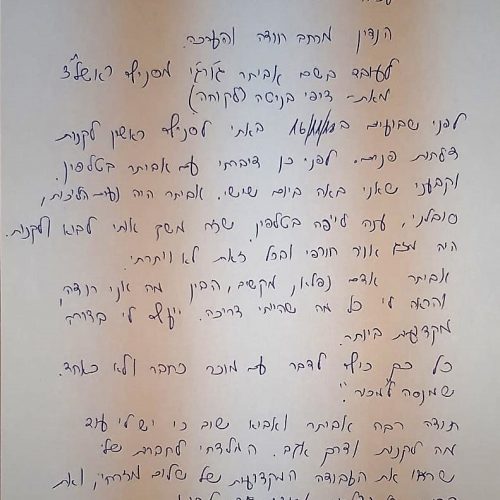 הנדון מכתב תודה והערכה.
לעובד בשם אביתר ג'ורג'י מסניף ראשל"צ
מאת- ציפי בנישה (לקוחה)
לפני שבועיים ב 16/11/18 באתי לסניף ראשון לקנות
דלתות פנים. לפני כן דיברתי עם אביתר בטלפון.
וקבענו שאני באה ביום שישי. אביתר היה נעים הליכות,
סובלני, ענה לייפה בטלפון, שזה משך אותי לבוא ולקנות.
היה מזג אויר חורפי ובכל זאת לא ויתרתי.
אביתר אדם נפלא, מקשיב, הבין מה אני רוצה,
והראה לי כל מה שהייתי צריכה. ייעץ לי בצורה
מקצועית ביותר.
כל כך כיף לדבר עם מוכר כחבר ולא כאחד.
שמנסה למכור".
תודה רבה אביתר ואבוא שוב כי יש לי עוד
מה לקנות ודרך אגב. המלצתי לחברות שלי
שראו את העבודה המקצועית של שלום מזרחי, ואת